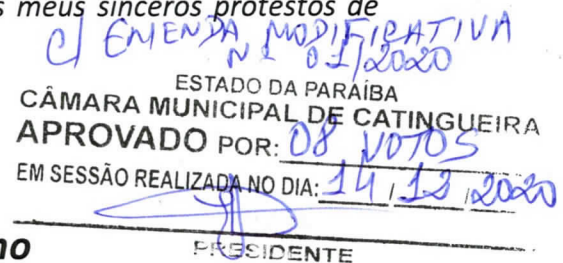 s meus sinceros protestos de
C/ EMENDA MODIFICATIVA
Nº 01/2020
ESTADO DA PARAÍBA
CÂMARA MUNICIPAL DE CATINGUEIRA
APROVADO POR: 08 VOTOS
EM SESSÃO REALIZADA NO DIA: 14 / 12 / 2020
PRESIDENTE
no